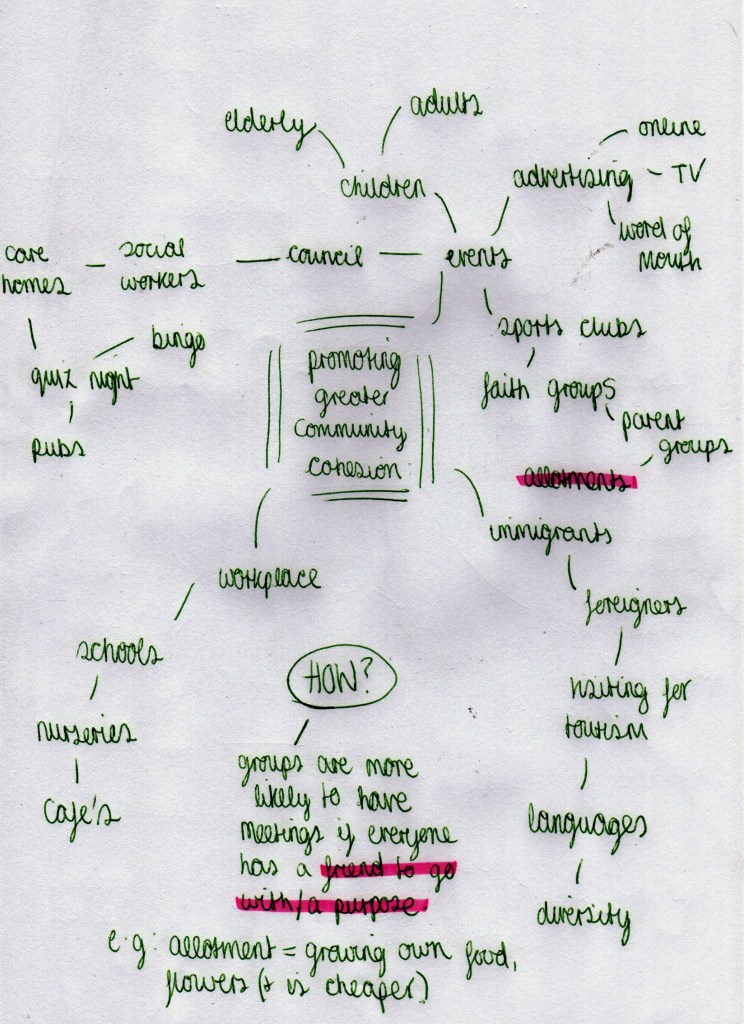 adults
elderly
online
children
advertising
TV
word of
mouth
care
homes
social
workers
council
events
sports clubs
bingo
quiz night
pubs
promoting
greater
community
cohesion
faith groups
parent
groups
allotments
immigrants
workplace
foreigners
schools
HOW?
visiting for
tourism
nurseries
cafe's
groups are more
likely to have
meetings if everyone
has a friend to go
with/a purpose.
languages
diversity
e.g: allotment = growing own food,
flowers (& is cheaper)